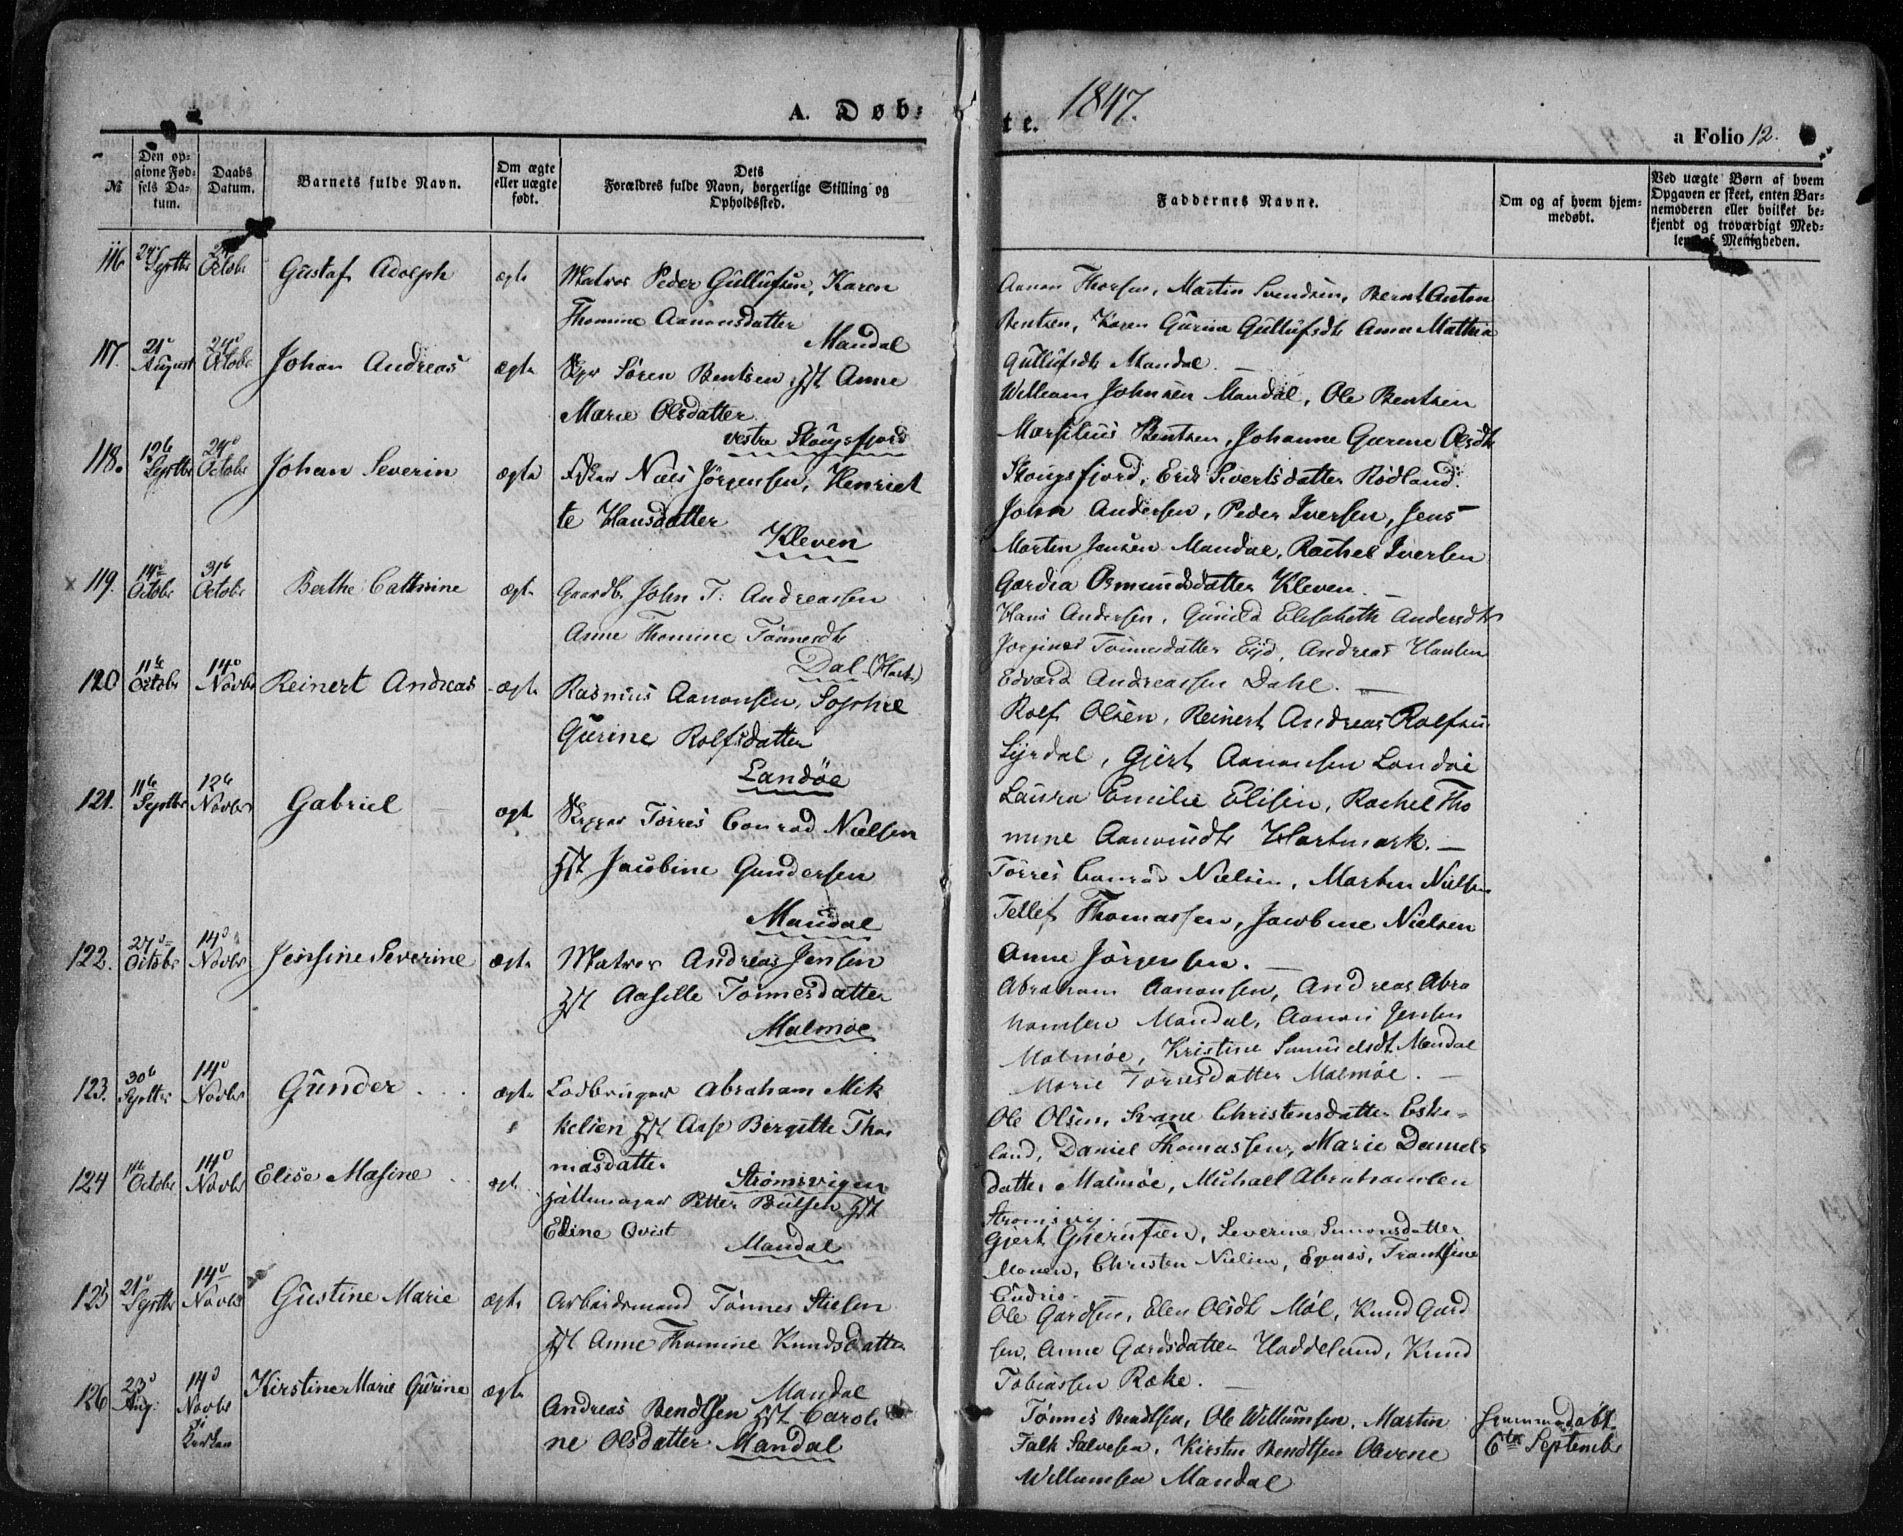 A. Døb-
te. 1847.
a Folio 12.
№
Den op-
givne Fød-
sels Da-
tum.
Daabs
Datum.
Barnets fulde Navn.
Om ægte
eller uægte
født.
Dets
Forældres fulde Navn, borgerlige Stilling og
Opholdssted.
Faddernes Navne.
Om og af hvem hjem-
medøbt.
Ved uægte Børn af hvem
Opgaven er skeet, enten Bar-
nemoderen eller hvilket be-
kjendt og troværdigt Med-
lem af Menigheden.
116 Septbr Octobr Gustaf Adolph ægte Matros Peder Gullufsen, Karen
Thomine Aanonsdatter
Mandal
Aanon Thorsen, Martin Svendsen, Bernt Anton
Bentsen, Karen Gurine Gullufsdt Anne Mathia
Gullufsdt Mandal.
117. 21 August 24 Octobr Johan Andreas ægte Søren Bentsen, Anne
Marie Olsdatter
vestre Skougsfjord
William Johnsen Mandal, Ole Bentsen
Marsilius Bentsen, Johanne Gurene Olsdt
Skougsfjord, Sivertsdatter Rødland.
118. 19 Septbr 24 Octobr Johan Severin ægte Niels Jørgensen, Henriet
te Hansdatter
Kleven
John Andersen, Peder Iversen, Jens
Martin Jensen Mandal, Rachel Iversen
Osmundsdatter Kleven.
119. 14 Octobr 31 Octobr Berthe Cathrine ægte Gaardb. John T. Andreassen
Anne Thomine Tønnesdt
Dal (Harb)
Hans Andersen, Gunild Elisabeth Andersdt
Tønnesdatter Eyd, Andreas Hansen
Edvard Andreassen Dahl.
120 11 Octobr 14 Novbr Reinert Andreas ægte Rasmus Aanonsen, Sophie
Gurine Rolfsdatter
Landøe
Rolf Olsen, Reinert Andreas Rolfsen
Syrdal, Gjert Aanonsen Landøe
Laura Emilie Elisen, Rachel Tho
mine Hartmark.
121. 11 Septbr 12 Novbr Gabriel ægte Skipper Tørres Conrad Nielsen
Jacobine Gundersen
Mandal
Tørres Conrad Nielsen, Marten Nielsen
Tellef Thomassen, Jacobine Nielsen
Anne Jørgensen.
122. 27 Octobr 14 Novbr Jensine Severine ægte Matros Andreas Jensen
Aasille Tønnesdatter
Malmøe
Abraham Aanonsen, Andreas Abra
hamsen Mandal, Aanon Jensen
Malmøe, Kristine Samuelsdt. Mandal
Marie Tørresdatter Malmøe.
123. 30 Septbr 14 Novbr Gunder ægte Lodbruger Abraham Mik
kelsen Aase Birgitte Tho
masdatter
Strømsvigen
Ole Olsen, Christensdatter Eske-
land, Daniel Thomassen, Marie Daniels
datter Malmøe, Michael Abrahamsen
Strømsvig.
124 Octobr 14 Novbr Elise Masine ægt Petter
Edine Qvist
Mandal
Gjert, Severine Simonsdatter
Monen, Christen Nielsen, Frantsine
125 21 Septbr 14 Novbr Gustine Marie ægte Arbeidsmand Tønnes
Anne Thomine Knudsdatter
Mandal
Ole Gardsen, Elen Olsdt Møl, Knud Gard
sen, Anne Gardsdatter Haddeland, Knud
Tobiassen Røke.
126 23 Aug. 14 Novbr Kirstine Marie Gurine ægte Andreas Bendtsen Caroli
ne Olsdatter Mandal
Tønnes Bendtsen, Ole Willumsen, Martin
Falk Salvesen, Kirsten Bendtsen Olevene
Willumsen Mandal
Hjemmedøbt
6te September